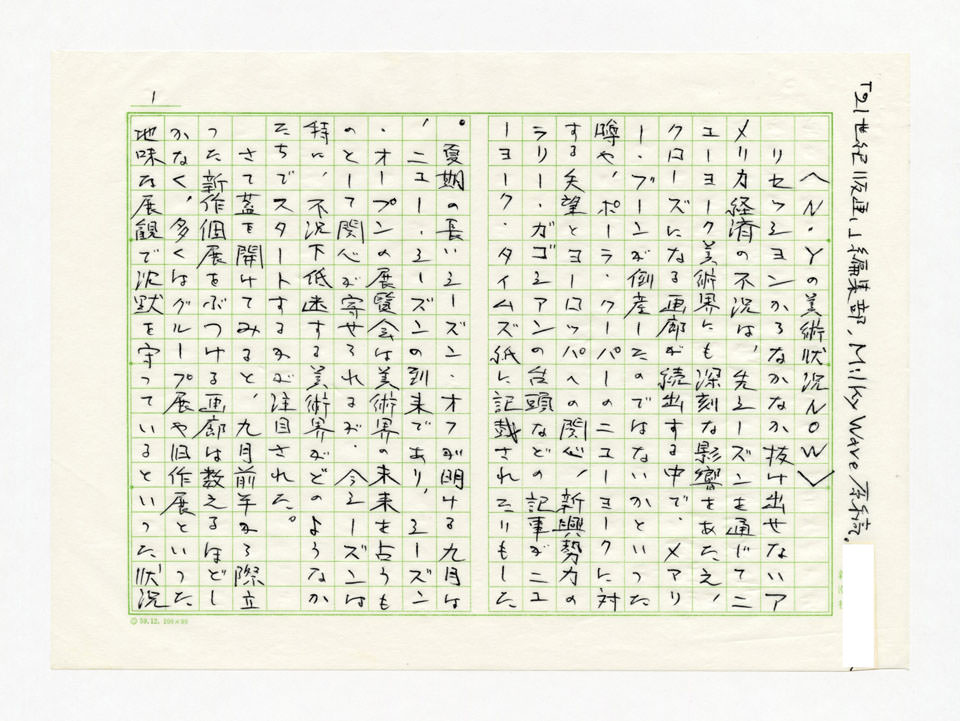 「21世紀版画」編集部、Milky Wave原稿。
1
〈N・Yの美術状況NOW〉
リセッションからなかなか抜け出せないア
メリカ経済の不況は、先シーズンを通じてニ
ューヨーク美術界にも深刻な影響をあたえ、
クローズになる画廊が続出する中で、メアリ
ー・ブーンが倒産したのではないかといった
噂や、ポーラ・クーパーのニューヨークに対
する失望とヨーロッパへの関心、新興勢力の
ラリー・ガゴシアンの台頭などの記事がニュ
ーヨーク・タイムズ紙に記載されたりもした
。
夏期の長いシーズン・オフが明ける九月は
、ニュー・シーズンの到来であり、シーズン
・オープンの展覧会は美術界の未来を占うも
のとして関心が寄せられるが、今シーズンは
特に、不況下低迷する美術界がどのようなか
たちでスタートするかが注目された。
さて蓋を開けてみると、九月前半から際立
った新作個展をぶつける画廊は数えるほどし
かなく、多くはグループ展や旧作展といった
地味な展観で沈黙を守っているといった状況
59.12. 100×99